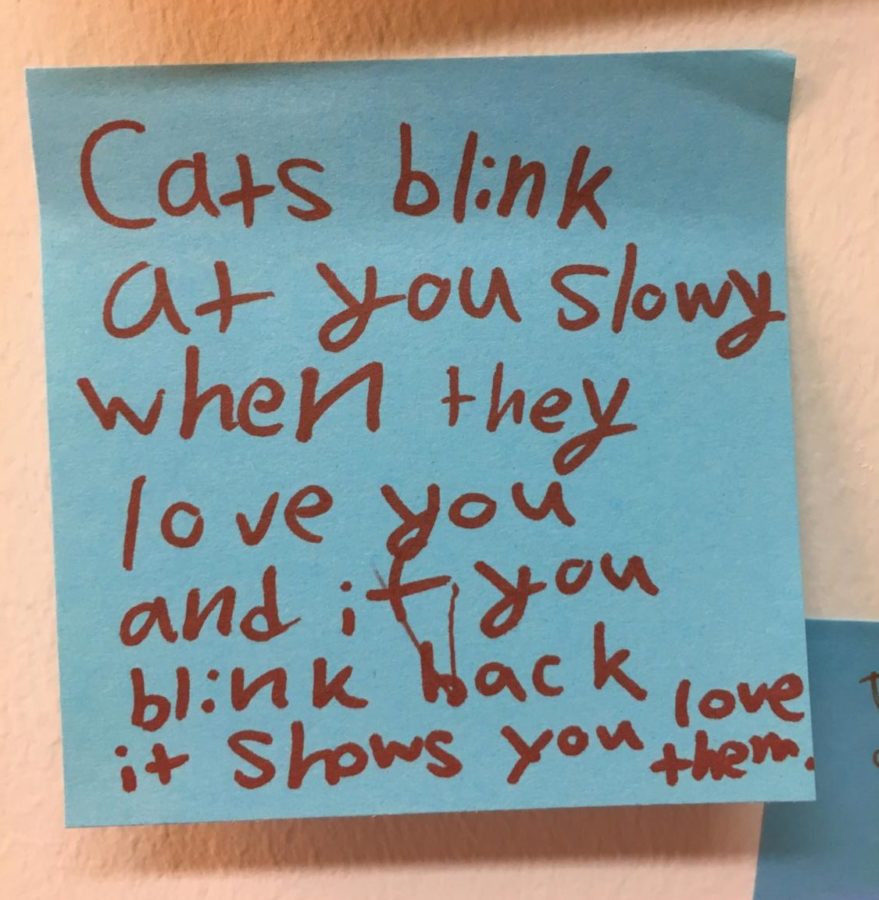 Cats blink
at you slowy
when they
love you
and if you
blink back
it shows you love
them.